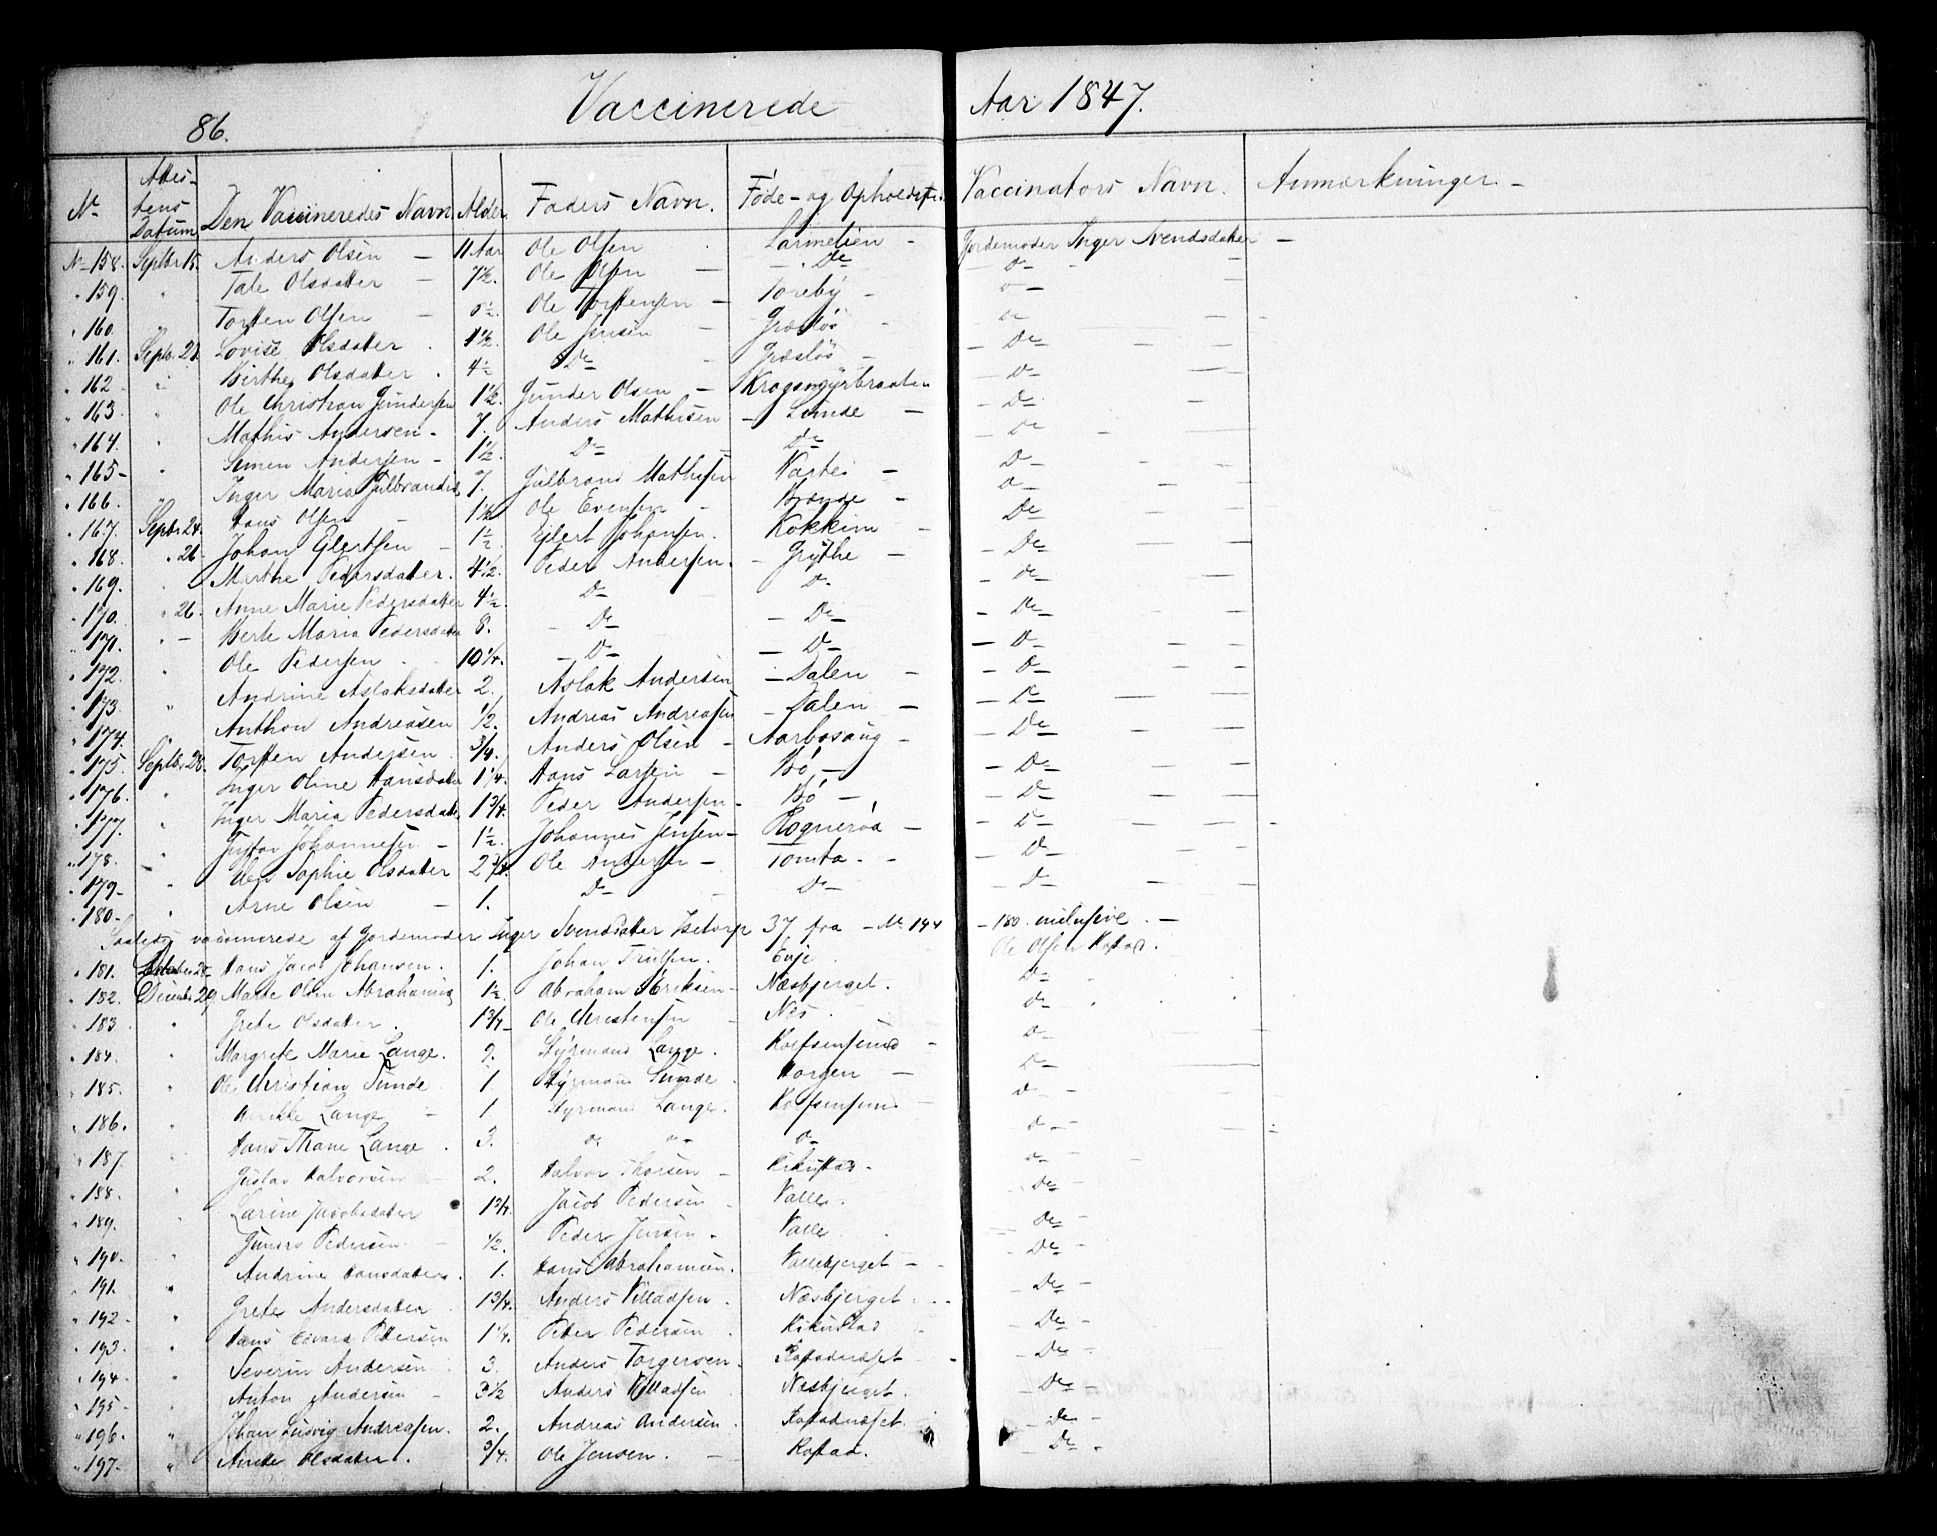 Vaccinerede Aar 1847.
86.
No Attestens Datum Den Vaccineredes Navn Alder Faders Navn. Føde- og Opholdst. Vaccinators Navn. Anmærkninger. -
No 158. Septbr 15. Anders Olsen - 11 Aar Ole Olsen Larmelien - Jordemoder Inger Svendsdatter -
" 159. " Tale Olsdatter - 7½. Ole Olsen - Do Do
" 160. Torsten Olsen - Ole Torstensen - Toreby - Do
" 161. Septb. 21. Lovise Olsdatter 1½. Ole Jensen - Græsløs - Do
" 162 " Birthe Olsdatter. 4½ Do Græsløs - Do
" 163. " Ole Christian Gundersen 1½. Gunder Olsen - Krogsmyrbraaten Do
" 164. " Mathis Andersen - 7. Anders Mathisen - Lunde - Do
" 165 - " Simen Andersen - 1½. Do Do Do
" 166. " Inger Maria Gulbrandsd 7. Gulbrand Mathisen - Do
" 167. Septbr 24. Hans Olsen - 1½ Ole Evensen - Brænde - Do
" 168. " 26 - Johan Eilertsen - 1½. Ejlert Johansen. Kokkim - Do
" 169. " Marthe Pedersdatter. 4½. Peder Andersen. - Grythe - Do
" 170. " 26. Anne Marie Pedersdatter 4½. Do Do Do
" 171. " - Berte Maria Pedersdatter 8. - Do - Do - Do
" 172. " Ole Pedersen 10¼. - Do - Do - Do
" 173. " Andrine Aslaksdatter 2. Aslak Andersen - Dalen - Do
" 174. " Anthon Andreasen ½. Andreas Andreasen - Dalen - Do
" 175. Septbr 28. Torsten Andersen ¾. Anders Olsen - Aarbosaug - Do
" 176. " Inger Oline Hansdatter 1¼. Hans Larsen - Bö - Do
" 177. " Inger Maria Pedersdatter 1¾. Peder Andersen - Bö - Do
" 178. " Gustav Johannesen - 1½. Johannes Jensen - Rogneröd - Do
" 179 - " Sophie Olsdatter 2¾. Ole Andersen - Tomta. - Do
" 180 - " Arne Olsen - 1. Do Do Do
Saaledes vaccinerede af Jordemoder Inger Svendsdatter 37 fra - No 144 - 180. inclusive. -
" 181. Hans Jacob Johansen. 1. Johan Evje Ole Olsen Kostad.
" 182. December 29. Abrahamsen 1½. Abraham Eriksen - Næsbjerget. Do
" 183 " Grete Olsdatter. 1¾ - Ole Christensen Næs. Do
" 184. " Margrete Marie Lange. 9. Styrmand Lange. Do
" 185. " Ole Christian Sunde. 1. Styrmand Sunde. Horgen - Do
" 186. " Lange - 1. Styrmand Lange. Do
" 187 " Hans Thane Lange. 3. Do " Do Do
" 188. " Gustav Halvorsen 2. Halvor Thorsen - Kikustad - Do
" 189. Larine Jacobsdatter 1¾. Jacob Pedersen - Valle. Do
" 190. " Pedersen - ½. Peder Jensen - Valle. Do
" 191. " Andrine Hansdatter. 1. Hans Abrahamsen. Vallebjerget - Do
" 192 - " Grete Andersdatter 1¾. Anders Villadsen. Næsbjerget. Do
" 193. " Hans Edvard Pettersen 1¼. Peter Pedersen. Kikustad Do
" 194 - " Severin Andersen 3. Anders Torgersen. Kostadnæset Do
" 195 - " Anton Andersen - 3½ Anders Villadsen Næsbjerget. Do
" 196. " Johan Ludvig Andreasen. 2. Andreas Andersen. Kostadnæset Do
" 197. " Anete Olsdatter. ¾. Ole Jensen. - Kostad. Do